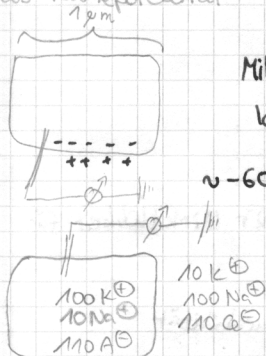 1 µm
Mi
- - - - -
++ + +
~ -60
100 K⊕
10 Na⊕
110 A⊖
10 K⊕
100 Na⊕
110 Cl⊖